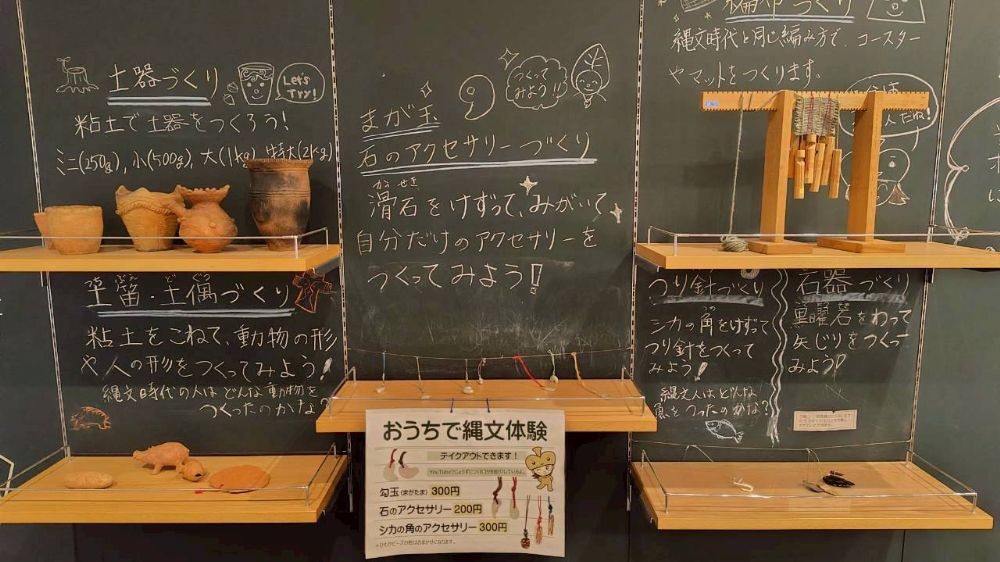 土器づくり
Let's Try!
粘土で土器をつくろう!
ミニ(250g), 小(500g), 大(1kg), 特大(2kg)
土笛・土偶づくり
ぶえ どぐう
粘土をこねて、動物の形
や人の形をつくってみよう!
縄文時代の人はどんな動物を
つくったのかな?
つくってみよう!!
まが玉
石のアクセサリーづくり
かせき
滑石をけずって、みがいて、
自分だけのアクセサリーを
つくってみよう!
おうちで縄文体験
テイクアウトできます!
勾玉(まがたま) 300円
石のアクセサリー 200円
シカの角のアクセサリー 300円
編布づくり
縄文時代と同じ編み方で、コースター
やマットをつくります。
人だね!
つり針づくり
シカの角をけずって
つり針をつくって
みよう!
縄文人はどんな
魚をつったのかな?
石器づくり
黒曜岩をわって
矢じりをつくって
みよう!